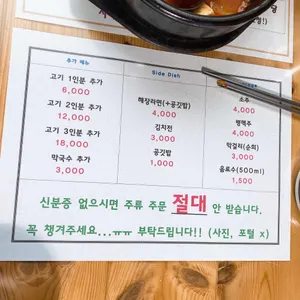 추가 메뉴
고기 1인분 추가
6,000
고기 2인분 추가
12,000
고기 3인분 추가
18,000
막국수 추가
3,000
Side Dish
해장라면(+공깃밥)
4,000
김치전
3,000
공깃밥
1,000
소주
4,000
병맥주
4,000
막걸리(순희)
3,000
음료수(500ml)
1,500
신분증 없으시면 주류 주문 절대 안 받습니다.
꼭 챙겨주세요...ㅠㅠ 부탁드립니다!! (사진, 포털 x)